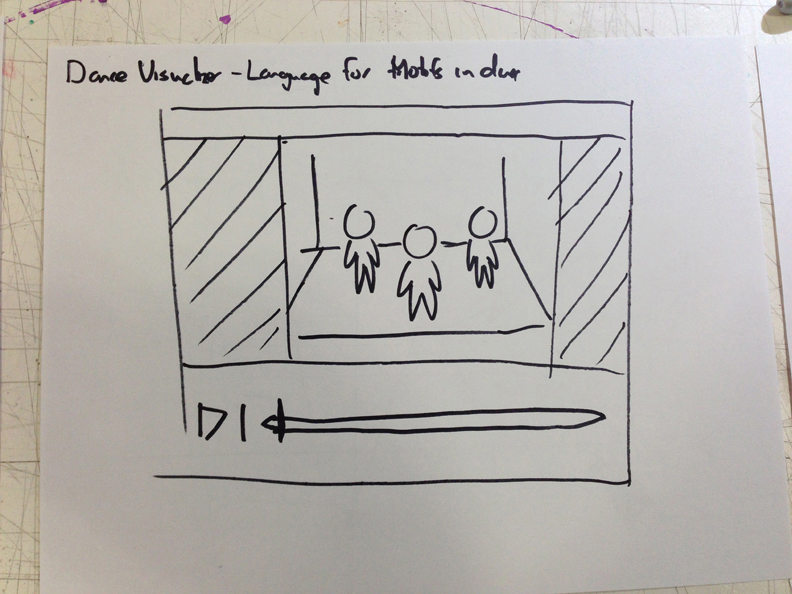 Dance Visualizer - Language for Motifs in dance